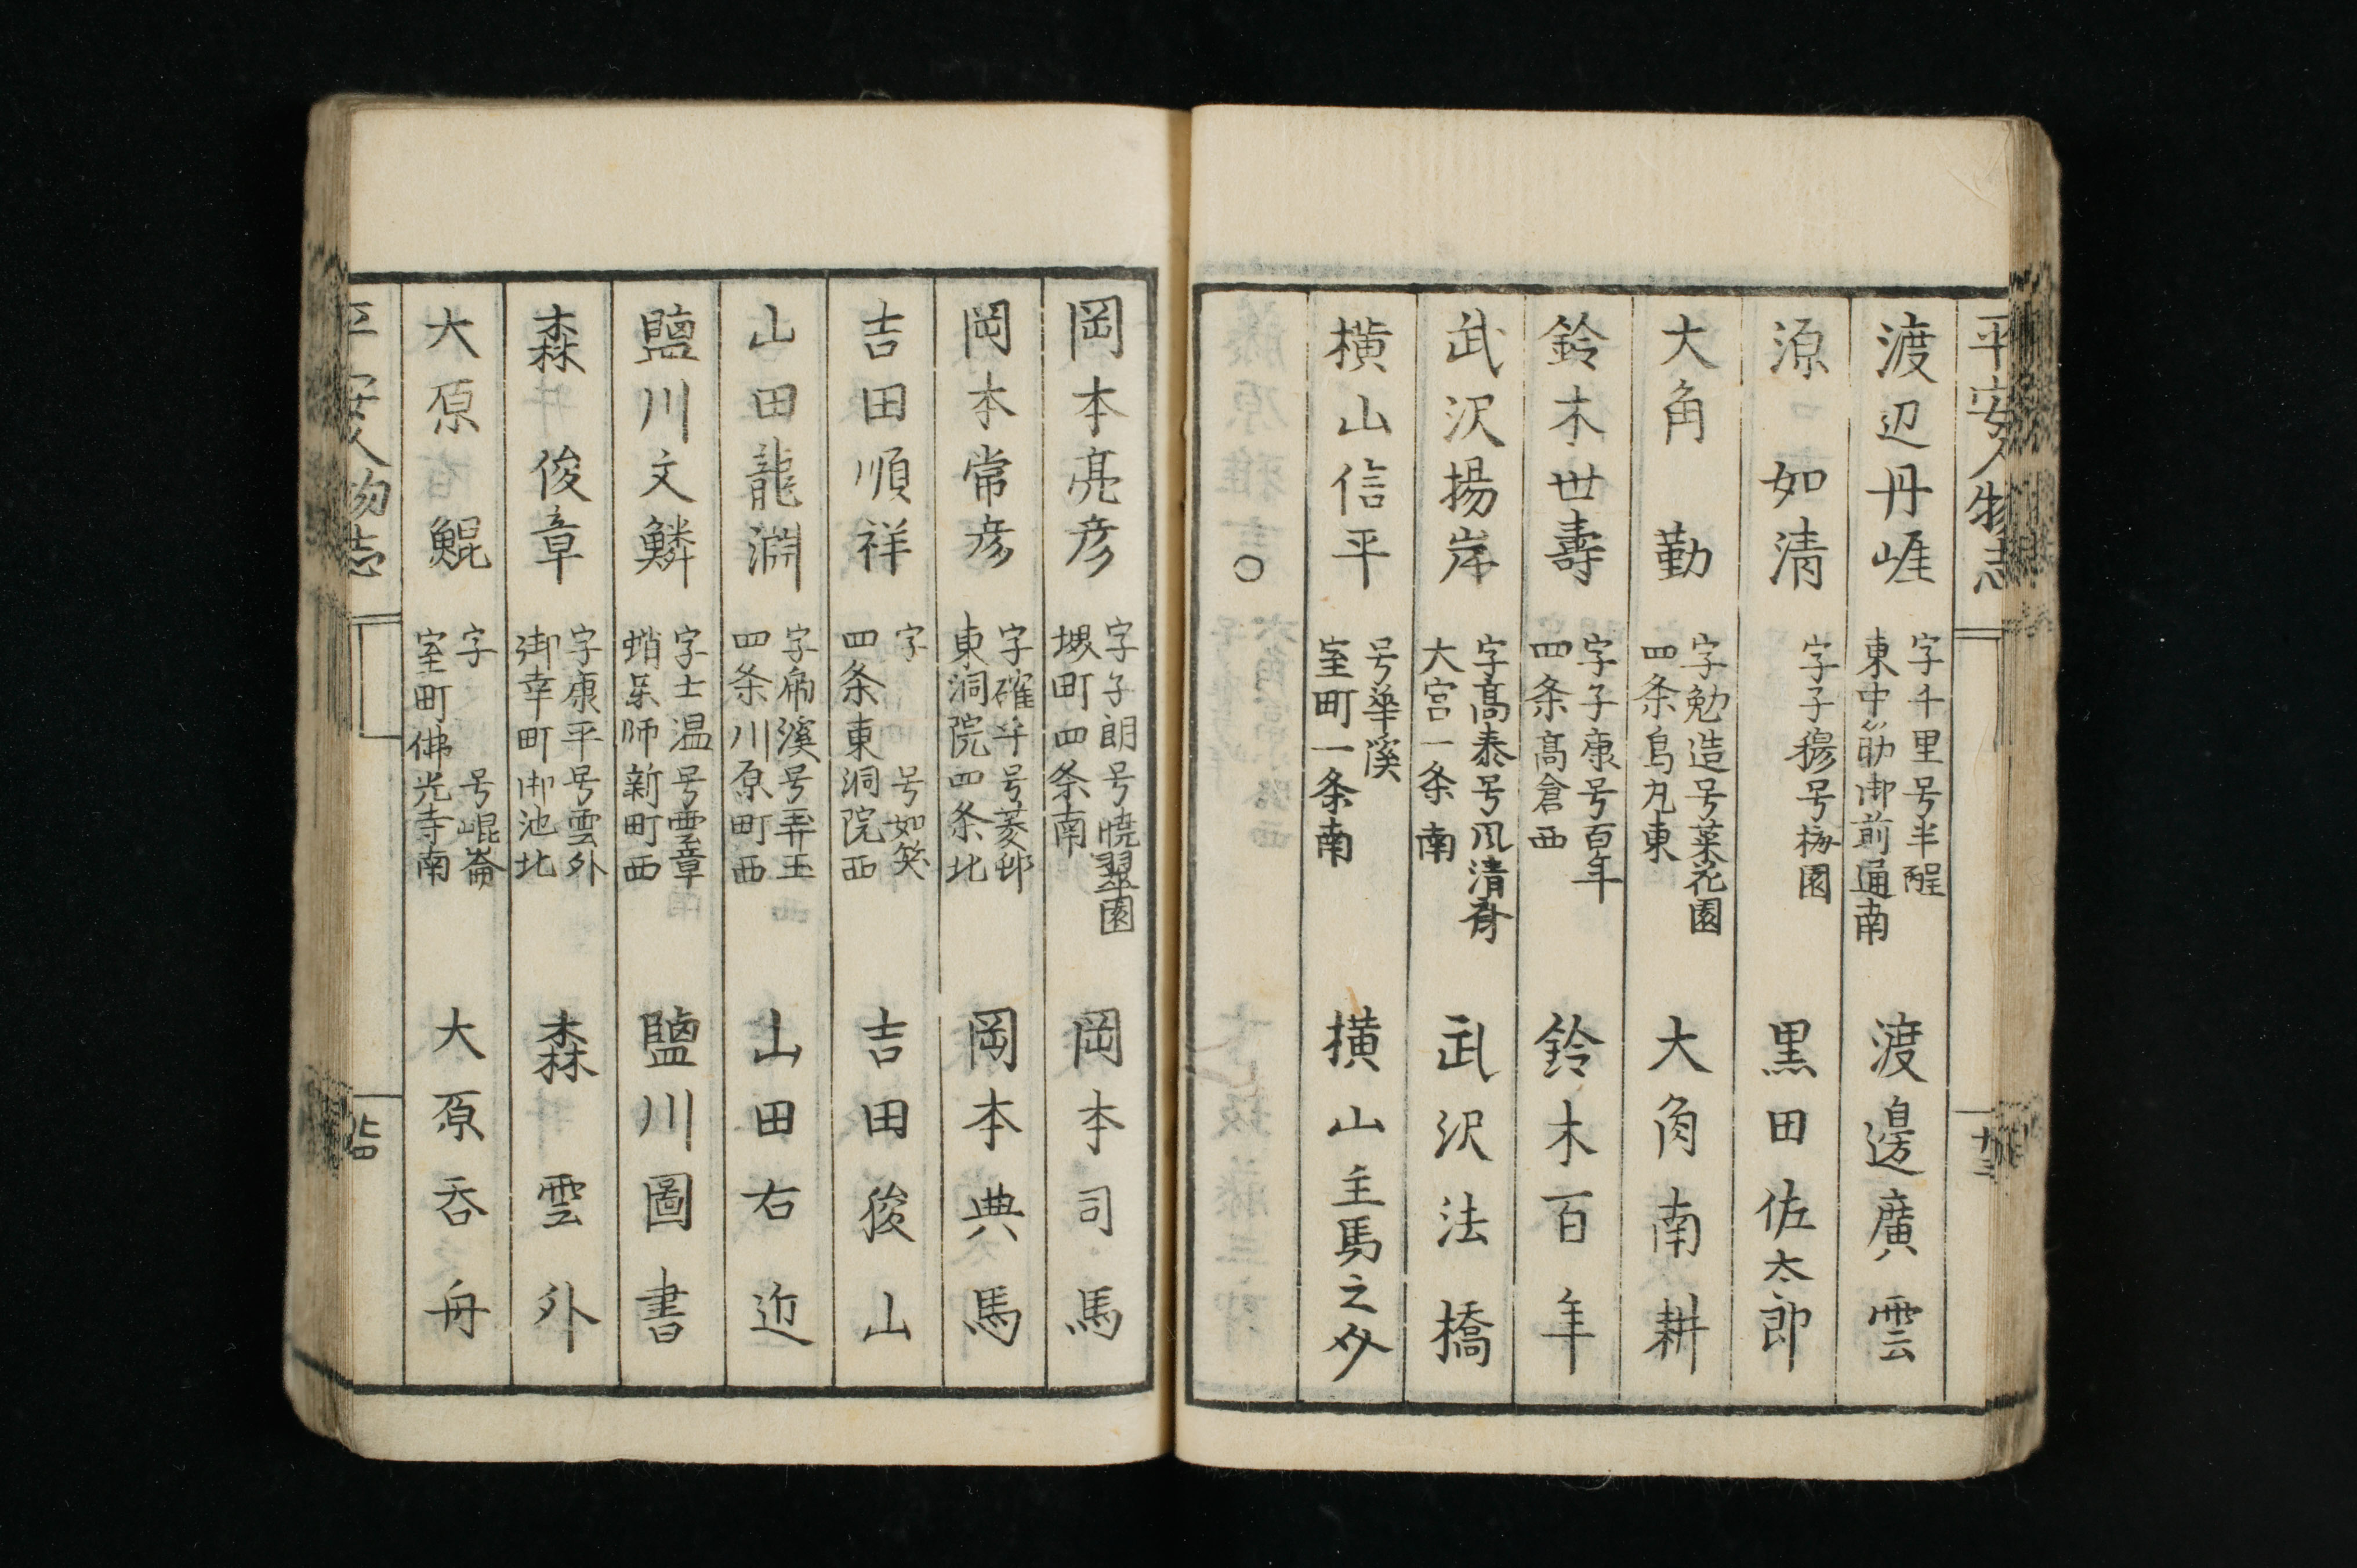 平安人物志
十三
渡辺丹崕
字千里号半醒
東中筋御前通南
渡邊廣雲
源如清
字子穆号梅園
黒田佐太郎
大角勤
字勉造号菜花園
四条烏丸東
大角南耕
鈴木世壽
字子康号百年
四条髙倉西
鈴木百年
武沢揚岸
字髙泰号风清舟
大宮一条南
武沢法橋
横山信平
号華溪
室町一条南
横山主馬之介
○
岡本亮彦
字子朗号曉翠園
堺町四条南
岡本司馬
岡本常彦
字確乎号菱邨
東洞院四条北
岡本典馬
吉田順祥
字 号如笑
四条東洞院西
吉田俊山
山田龍淵
字 溪号弄玉
四条川原町西
山田右近
鹽川文鱗
字士温号雲章
蛸藥师新町西
鹽川圖書
森俊章
字康平号雲外
御幸町御池北
森雲外
大原鯤
字 号崐崙
室町佛光寺南
大原呑舟
平安人物志